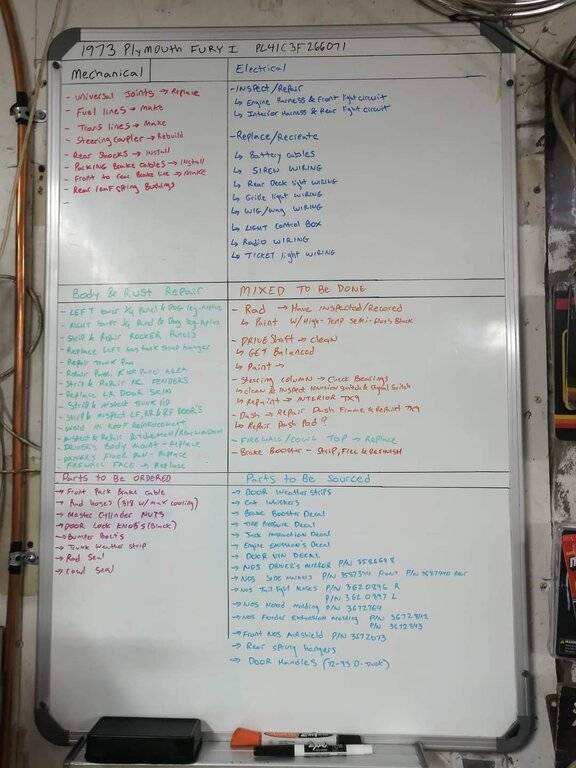 1973 Plymouth Fury I PL41C3F266071
Mechanical
- Universal Joints → Replace
- Fuel lines → Make
- Trans lines → Make
- Steering coupler → Rebuild
- Rear Shocks → Install
- Parking Brake Cables → Install
- Front to rear Brake line → Make
- Rear leaf spring Bushings
-
Electrical
- Inspect/Repair
↳ Engine Harness & Front light circuit
↳ Interior Harness & Rear light circuit
- Replace/Recreate
↳ Battery cables
↳ Siren Wiring
↳ Rear Deck light Wiring
↳ Grille light Wiring
↳ Wig/Wag Wiring
↳ Light Control Box
↳ Radio Wiring
↳ Ticket light Wiring
Body & Rust Repair
- Left lower 1/4 Panel & Dog leg - Replace
- Right lower 1/4 Panel & Dog leg - Replace
- Strip & Repair Rocker Panels
- Replace Left gas tank strap hanger
- Repair Trunk Pan
- Strip & Repair NC Fenders
- Replace LR Door Skin
- Strip & Inspect Trunk lid
- Strip & Inspect LF, RR & RF Door's
- Weld in Roof Reinforcement
- Driver's Body mount - Replace
- Driver's Floor Pan - Replace
- Firewall Face → Replace
Mixed To Be Done
- Rad → Have Inspected/Recored
↳ Paint w/High-Temp Semi-Gloss Black
- Driveshaft → Clean
↳ Get Balanced
↳ Paint →
- Steering Column → Check Bearings
↳ Clean & Inspect Ignition Switch & Signal Switch
↳ Repaint → Interior TX9
- Dash → Repair Dash Frame & Repaint TX9
↳ Repair Dash Pad?
- Firewall/Cowl Top → Replace
- Brake Booster - Strip, Fill & Refinish
Parts to Be Ordered
→ Front Park Brake cable
→ Rad hoses (318 w/max cooling)
→ Master Cylinder Nuts
→ Door Lock Knob's (Black)
→ Bumper Bolt's
→ Trunk weather strip
→ Rad Seal
→ Cowl Seal
Parts to Be Sourced
→ Door Weather strips
→ Cat whiskers
→ Brake Booster Decal
→ Tire Pressure Decal
→ Jack Instruction Decal
→ Engine Emission's Decal
→ Door VIN Decal
→ NOS Driver's Mirror P/N 3586698
→ NOS Side Markers P/N 3587394 Front P/N 3587440 Rear
→ NOS Tail light P/N 3620896 R
P/N 3620897 L
→ NOS Hood Molding P/N 3672764
→ NOS Fender Extension Molding P/N 3672842
P/N 3672843
→ Front NOS Ashield P/N 3672073
→ Rear Spring hangers
→ Door Handles (72-93 D-Truck)